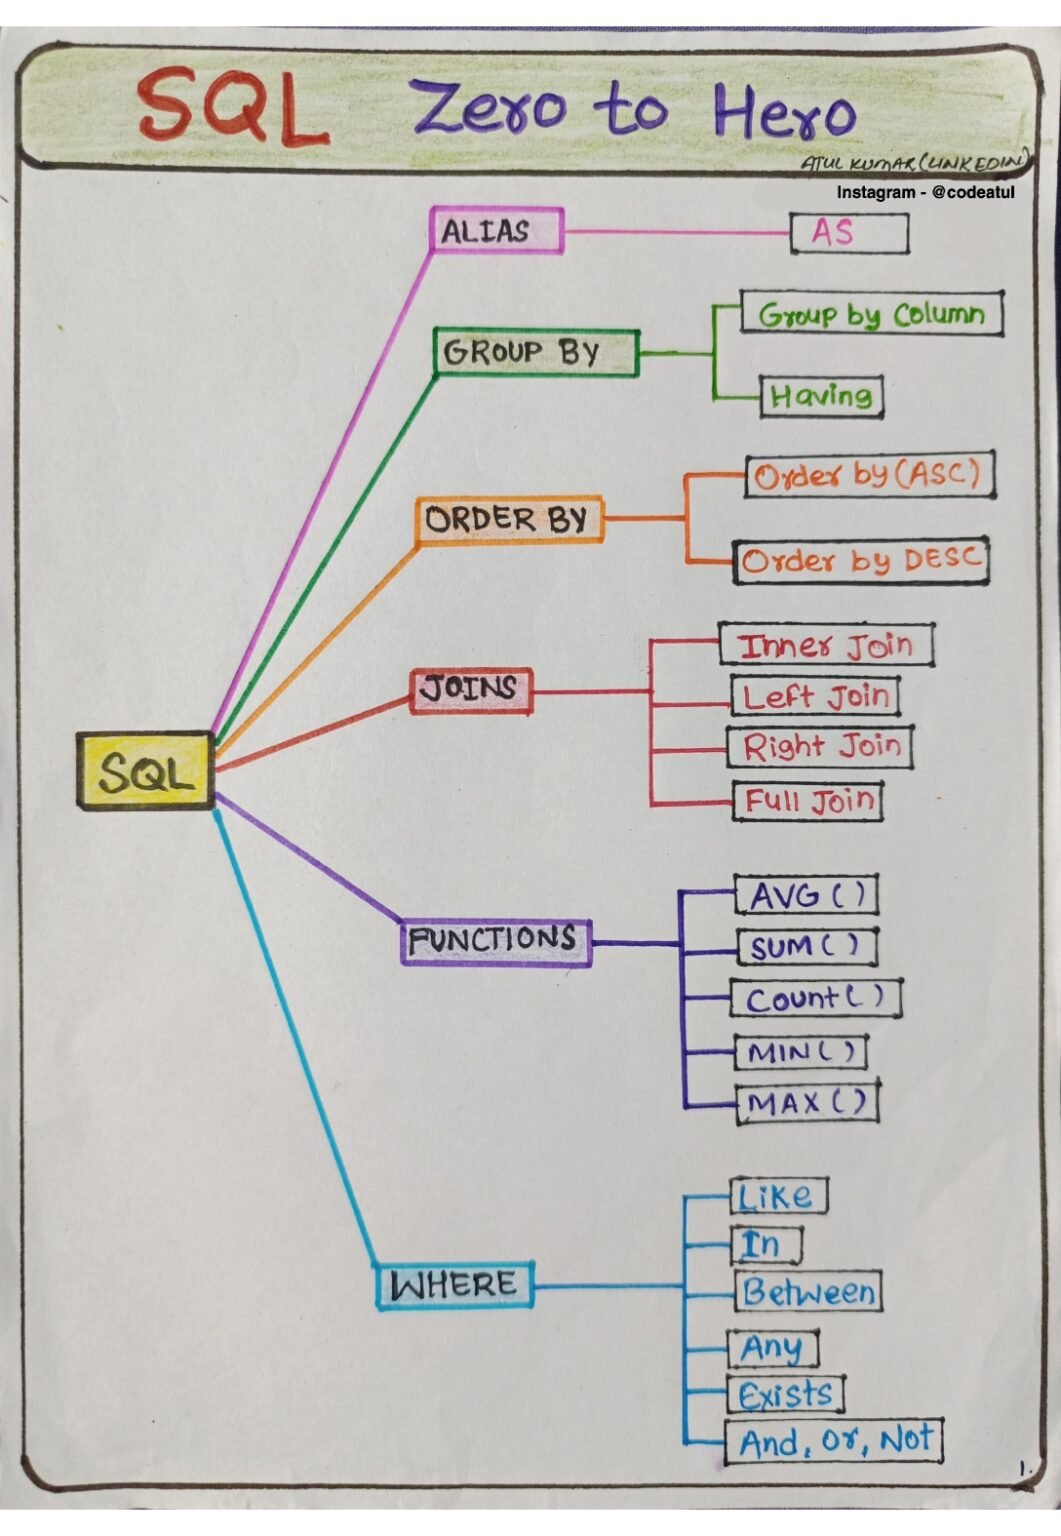 SQL Zero to Hero
ATUL KUMAR (LINKEDIN)
Instagram - @codeatul
ALIAS
AS
GROUP BY
Group by Column
Having
ORDER BY
Order by (ASC)
Order by DESC
SQL
JOINS
Inner Join
Left Join
Right Join
Full Join
FUNCTIONS
AVG ( )
SUM ( )
Count ( )
MIN ( )
MAX ( )
WHERE
Like
In
Between
Any
Exists
And, Or, Not
1.